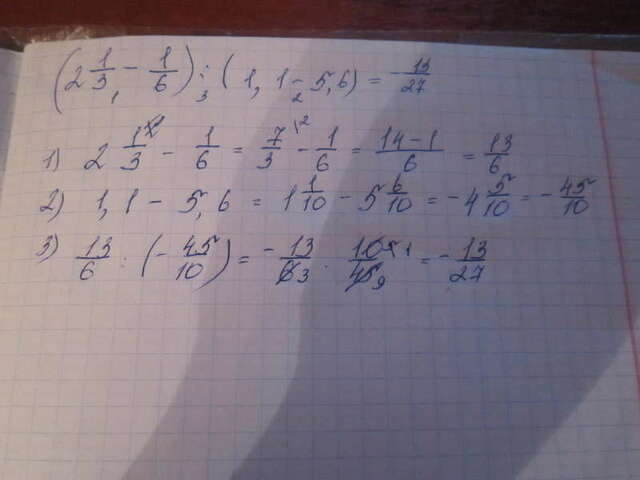 (2 1/3 - 1/6) : (1,1 - 5,6) = - 13/27
1) 2 1/3 - 1/6 = 7/3 - 1/6 = 14-1/6 = 13/6
2) 1,1 - 5,6 = 1 1/10 - 5 6/10 = -4 5/10 = - 45/10
3) 13/6 : (- 45/10) = - 13/6 3 · 10 5 1/45 9 = - 13/27